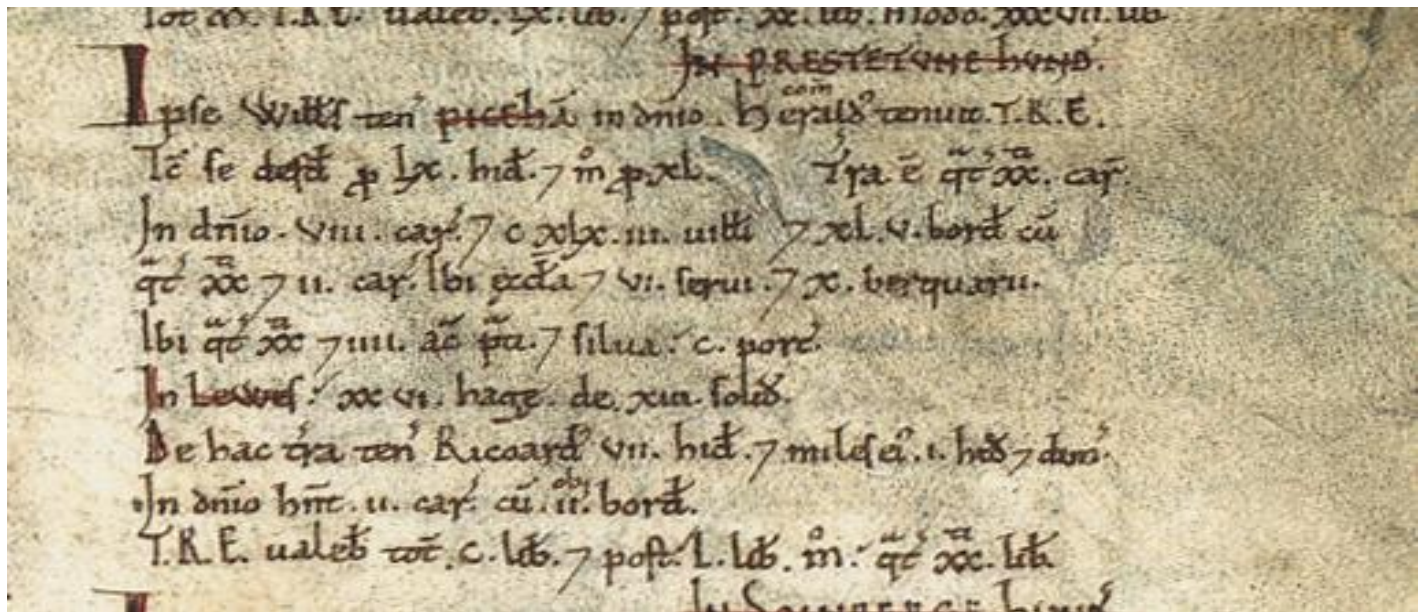 Tot̄ m̄. T.R.E. ualeb̄. lx. lib̄. ⁊ post. xx. lib̄. modo. xxxvii. lib̄
In PRESTETVNE hVND'.
Ipse Willſ ten' piceha̅ in dn̄io. heralđ com̅ tenuit. T.R.E.
Tc̄ se defđ p̱ lx. hiđ. ⁊ m̊ p̱ xl. T'ra ē qͣt' xxͭͣ. car'.
In dn̄io. viii. car'. ⁊ c xlx. iii. uilli ⁊ xl. v. borđ cū
qͣt' xxͭͣ ⁊ ii. car'. Ibi æccła ⁊ vi. serui. ⁊ x. berquarii.
Ibi qͣt' xxͭͣ ⁊ iiii. ac̄ p̄ti. ⁊ silua. c. porc'.
In Lewes. xxvi. hagę. de. xiii. soliđ.
De hac t'ra ten' Ricoard' vii. hiđ. ⁊ miles ei' i. hiđ ⁊ dim'.
In dn̄io hn̄t. ii. car'. cū. ii. obꝫ borđ.
T.R.E. ualeb̄ tot̄. c. lib̄. ⁊ post. L. lib̄. m̊. qͣt' xxͭͣ. lib̄.